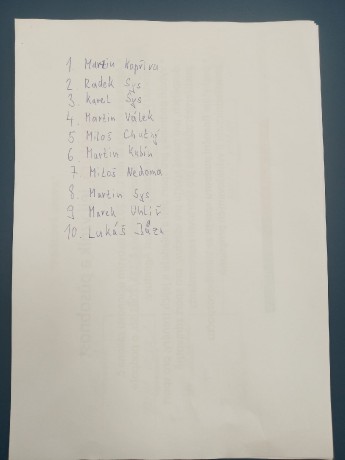 1. Martin Kopřiva
2 Radek Sys
3. Karel Sys
4 Martin Válek
5 Miloš Chutný
6 Martin Kubín
7 Miloš Nedoma
8. Martin Sys
9 Marek Uhlíř
10. Lukáš Bůzu